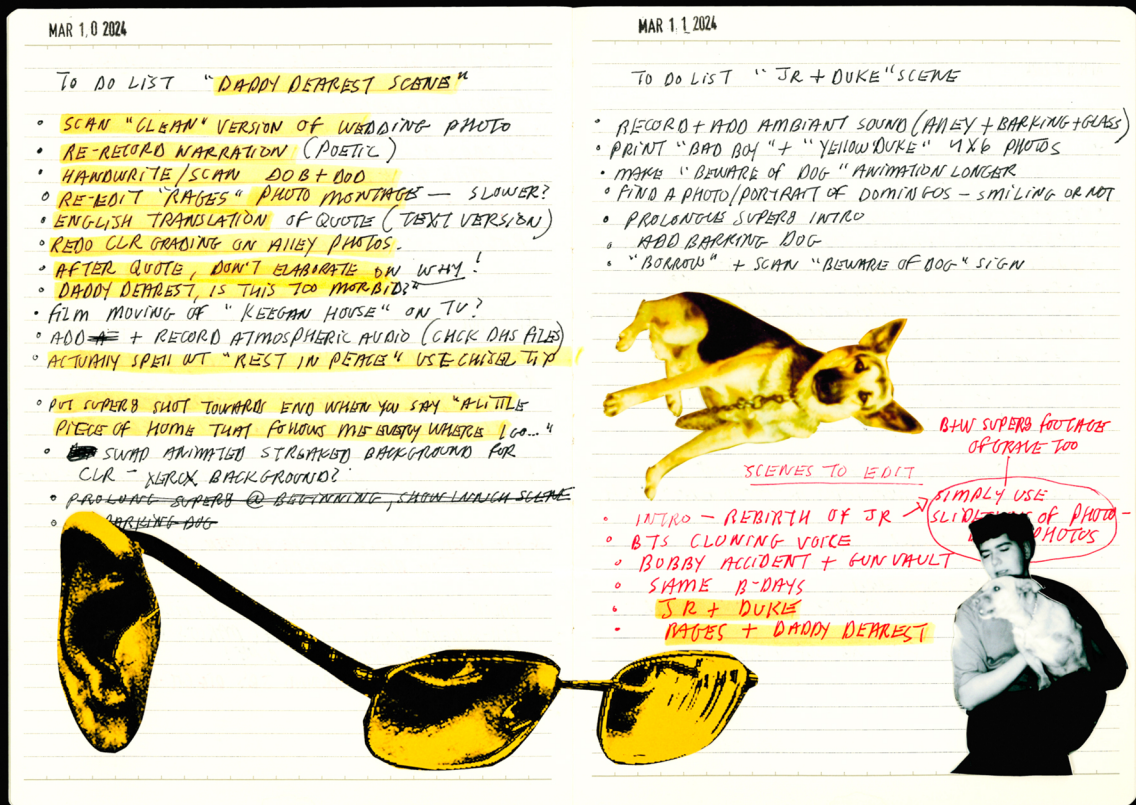 MAR 10 2024
TO DO LIST "DADDY DEAREST SCENE"
• SCAN "CLEAN" VERSION OF WEDDING PHOTO
• RE-RECORD NARRATION (POETIC)
• HANDWRITE/SCAN DOB + DOD
• RE-EDIT "RAGES" PHOTO MONTAGE — SLOWER?
• ENGLISH TRANSLATION OF QUOTE (TEXT VERSION)
• REDO CLR GRADING ON ALLEY PHOTOS.
• AFTER QUOTE, DON'T ELABORATE ON WHY!
• DADDY DEAREST, IS THIS TOO MORBID?"
• FILM MOVING OF "KEEGAN HOUSE" ON TV?
• ADD + RECORD ATMOSPHERIC AUDIO (CHCK DHS FILES)
• ACTUALLY SPELL OUT "REST IN PEACE" USE CHISEL TIP
• PUT SUPER8 SHOT TOWARDS END WHEN YOU SAY "A LITTLE
PIECE OF HOME THAT FOLLOWS ME EVERYWHERE I GO..."
• SWAP ANIMATED STREAKED BACKGROUND FOR
CLR — XEROX BACKGROUND?
• PROLONG SUPER8 @ BEGINNING, SHOW LUNCH SCENE
• BARKING DOG
MAR 11 2024
TO DO LIST "JR + DUKE" SCENE
• RECORD + ADD AMBIANT SOUND (ALLEY + BARKING + GLASS)
• PRINT "BAD BOY" + "YELLOW DUKE" 4X6 PHOTOS
• MAKE "BEWARE OF DOG" ANIMATION LONGER
• FIND A PHOTO/PORTRAIT OF DOMINGOS — SMILING OR NOT
• PROLONGUE SUPER8 INTRO
• ADD BARKING DOG
• "BORROW" + SCAN "BEWARE OF DOG" SIGN
B+W SUPER8 FOOTAGE
OF GRAVE TOO
SCENES TO EDIT
SIMPLY USE
OF PHOTO-
PHOTOS
• INTRO — REBIRTH OF JR
• BTS CLONING VOICE
• BOBBY ACCIDENT + GUN VAULT
• SAME B-DAYS
• JR + DUKE
• RAGES + DADDY DEAREST